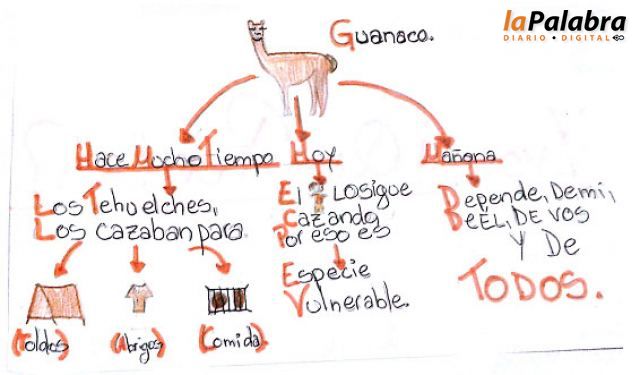 laPalabra
DIARIO • DIGITAL
Guanaco.
Hace Mucho Tiempo
Los Tehuelches,
Los cazaban para
(Toldos)
(Abrigos)
(Comida)
Hoy
El losigue
Cazando
Por eso es
Especie
Vulnerable.
Mañana
Depende, Demi,
DeEL, DE VOS
Y De
TODOS.